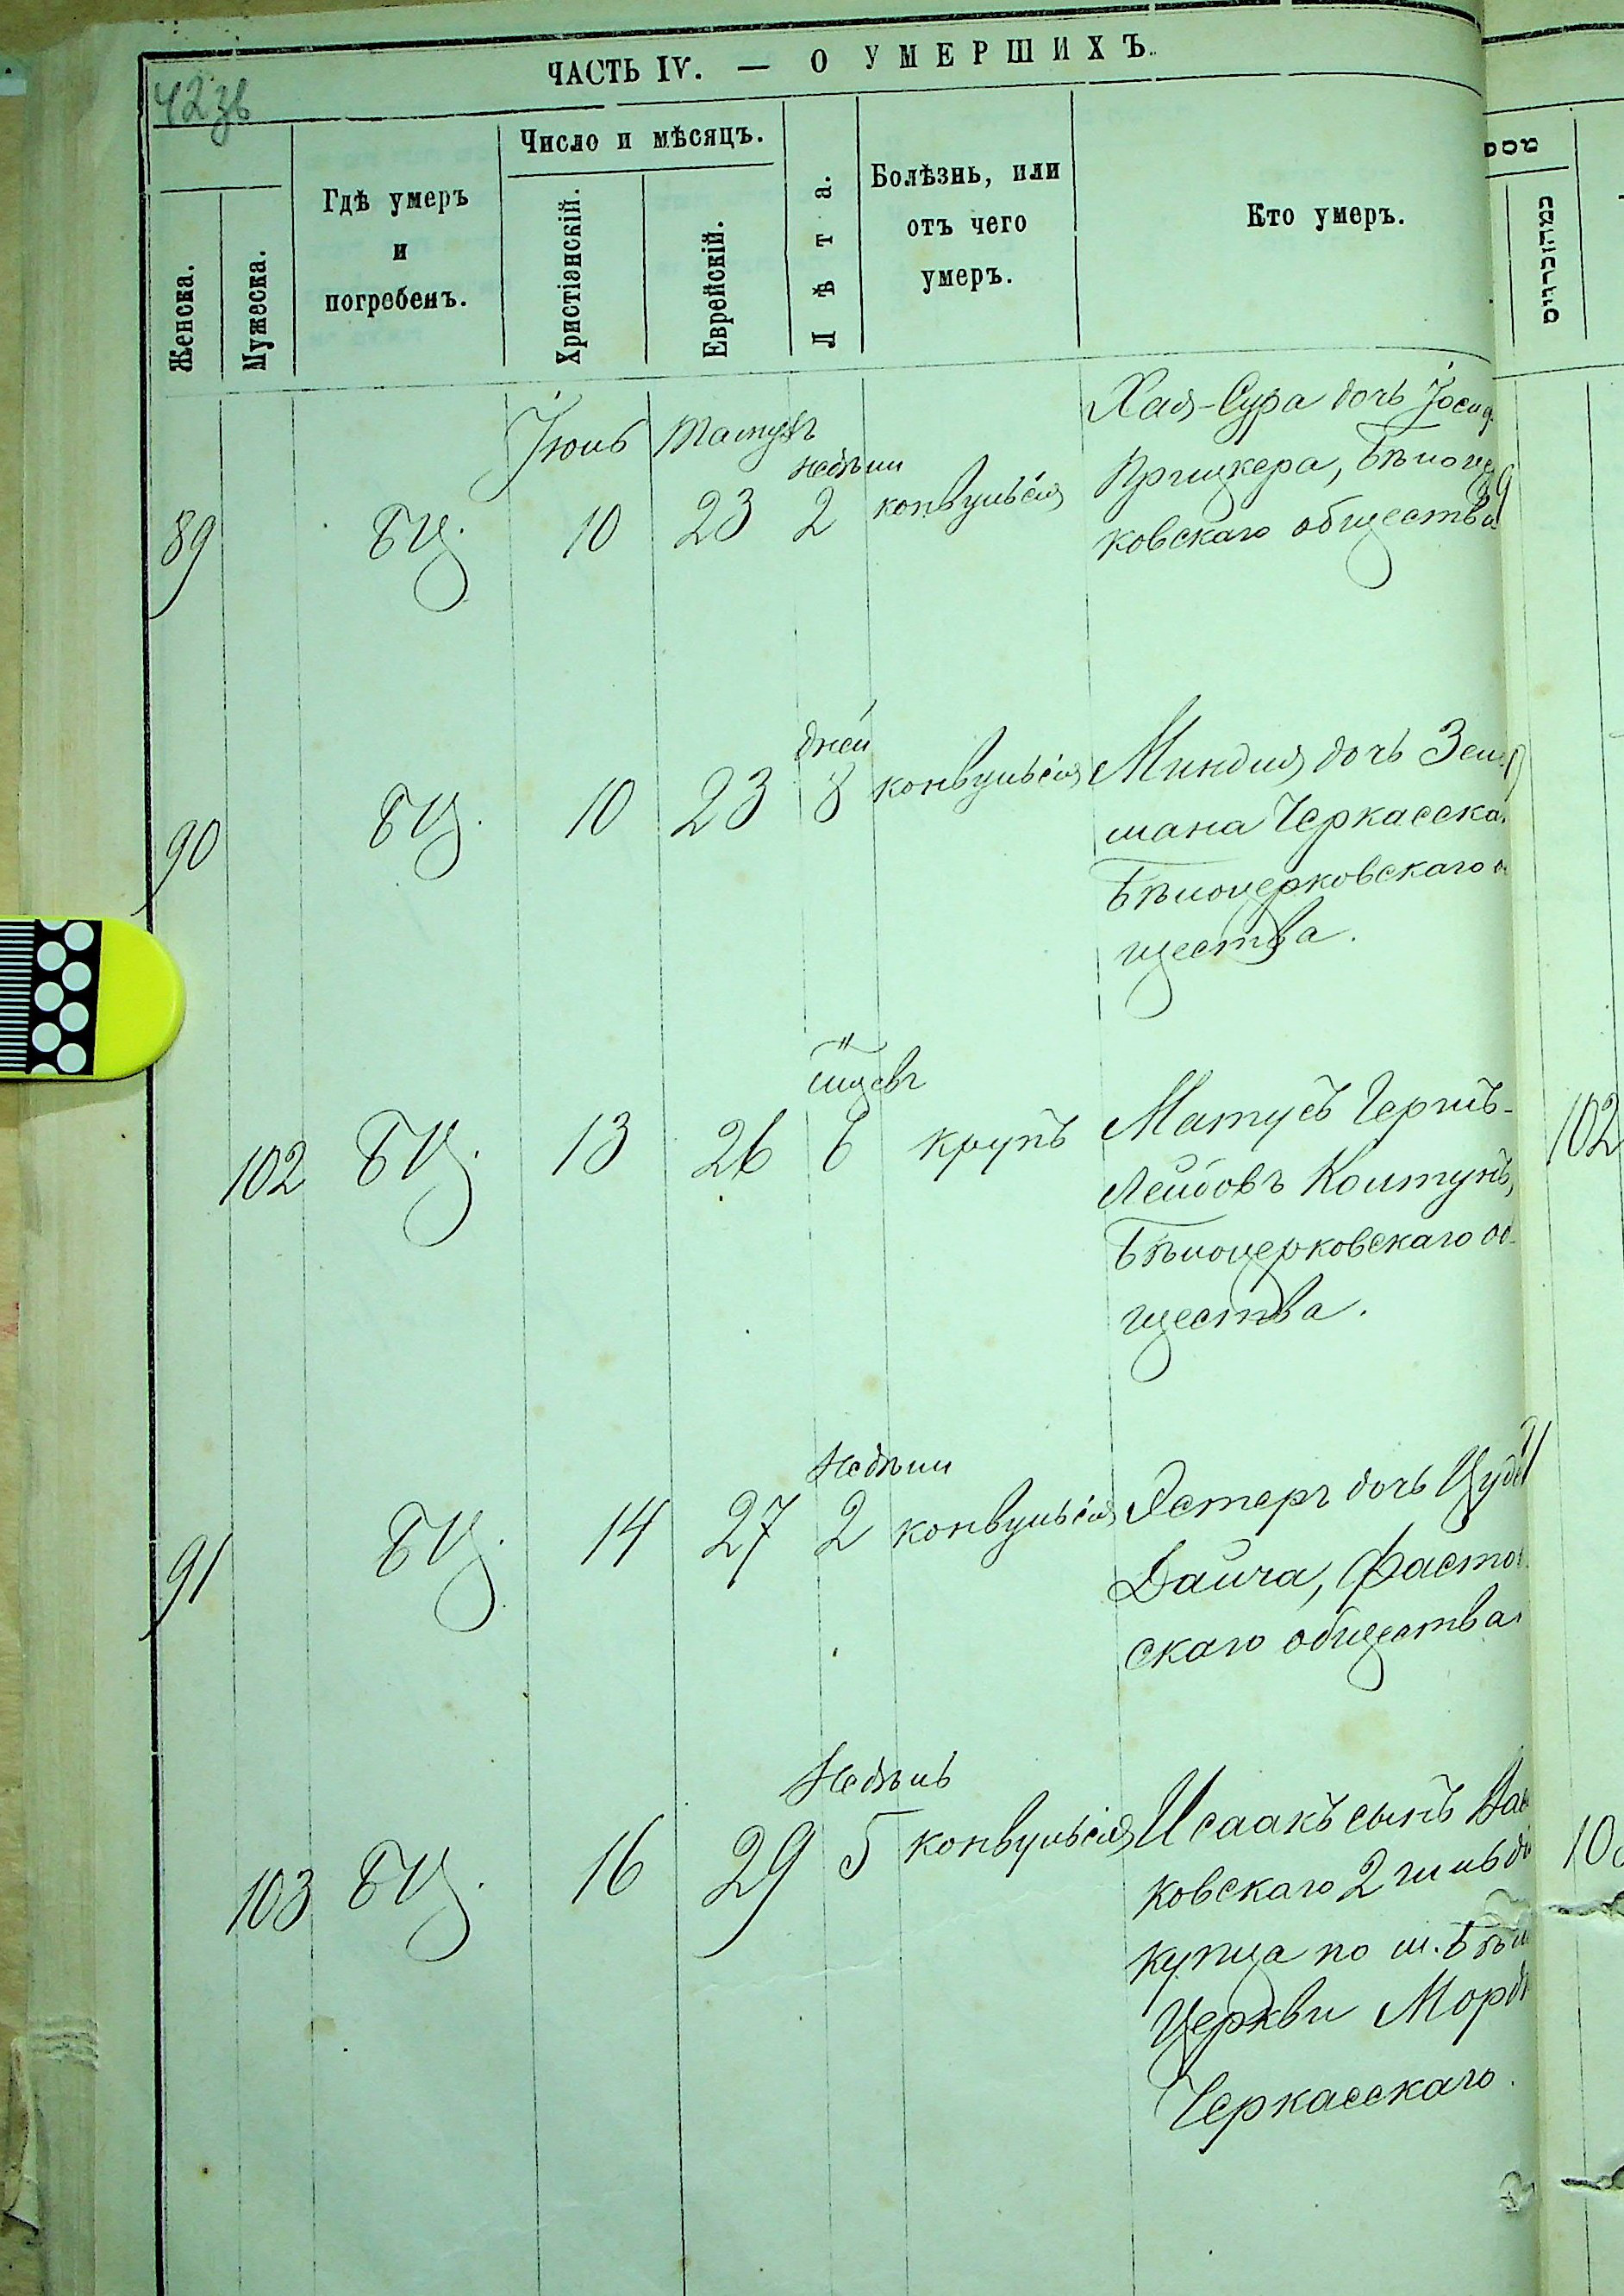 42зв
ЧАСТЬ IV. — О УМЕРШИХЪ.
Женска.
Мужеска.
Гдѣ умеръ
и
погребенъ.
Число и мѣсяцъ.
Христіанскій.
Еврейскій.
Лѣта.
Болѣзнь, или
отъ чего
умеръ.
Кто умеръ.
Іюнь Тамузъ
89 БЦ. 10 23
недѣли
2 конвульсія
Хая-Сура дочь Іосиф
Прицкера, Бѣлоцер
ковскаго общества
90 БЦ. 10 23
дней
8 конвульсія
Миндля дочь Зель
мана Черкасска
Бѣлоцерковскаго о
щества.
102 БЦ. 13 26
мцевъ
6 крупъ
Матусъ Гершъ-
Лейбовъ Колтунъ,
Бѣлоцерковскаго об-
щества.
102
91 БЦ. 14 27
недѣли
2 конвульсія
Эстеръ дочь
Дайча, Фастов
скаго общества.
103 БЦ. 16 29
недѣль
5 конвульсія
Исаакъ сынъ Ва
ковскаго 2 гильді
купца по м. Бѣл
Церкви Морд
Черкасскаго.
10